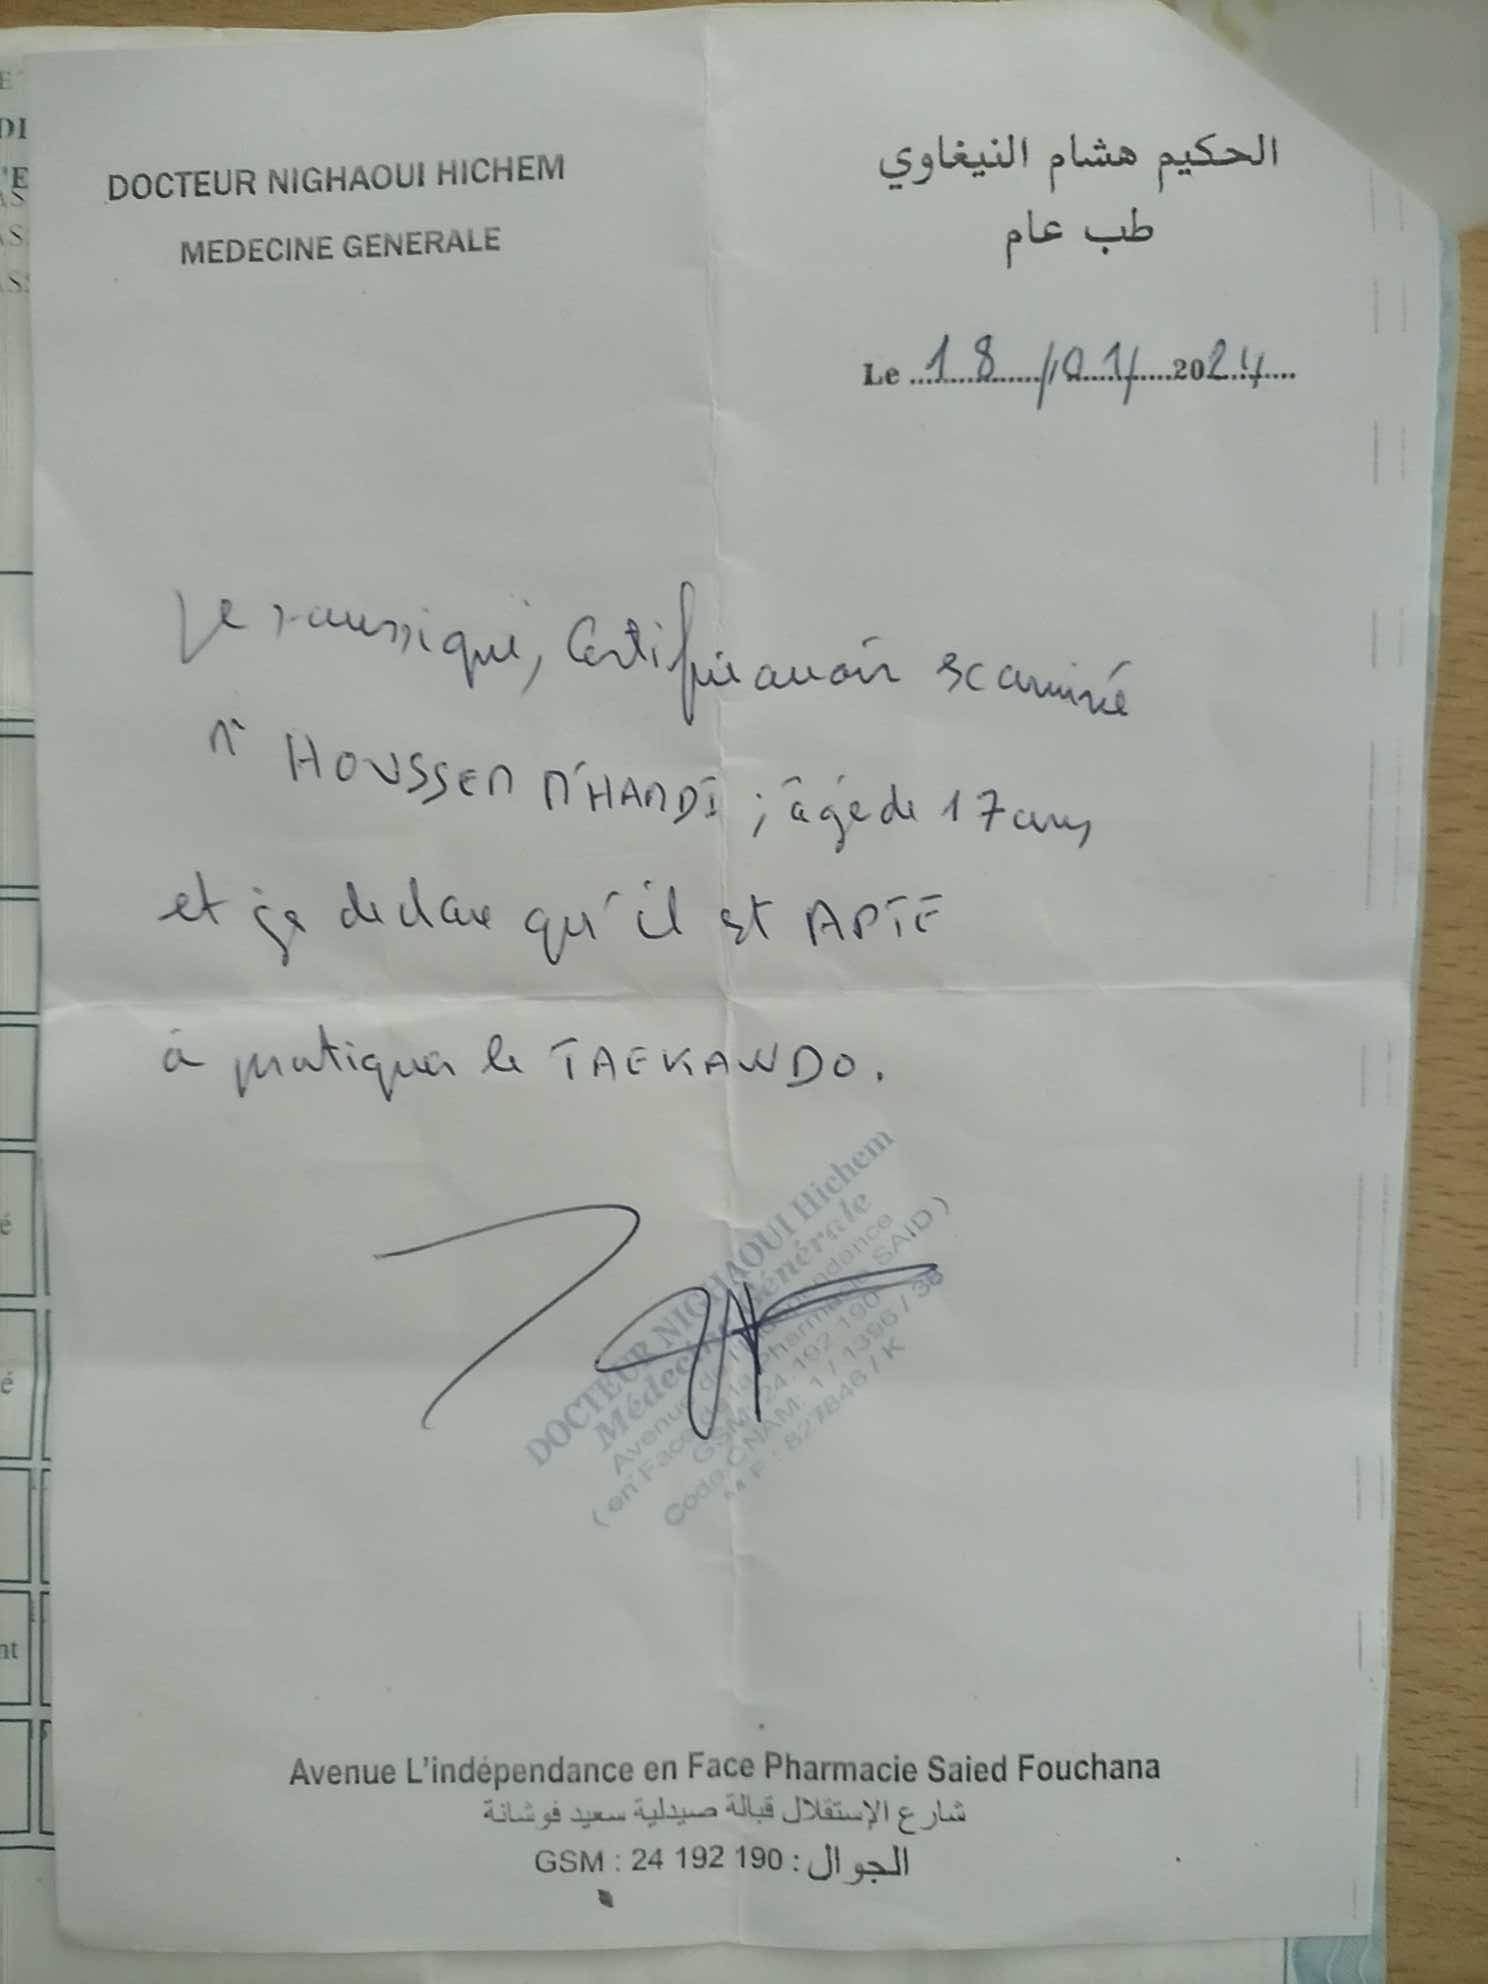 DOCTEUR NIGHAOUI HICHEM
MEDECINE GENERALE
الحكيم هشام النيغاوي
طب عام
Le 18/01/2024
Je soussigné, Certifie avoir examiné
Mr HOUSSEM M'HAMDI ; âgé de 17 ans
et je declare qu'il est APTE
à pratiquer le TAEKAWDO.
DOCTEUR NIGHAOUI Hichem
Médecine Générale
Avenue de l'Indépendance
( en Face de la Pharmacie SAID )
GSM: 24 192 190
Code CNAM: 1 / 1396 / 36
M F : 827846 / K
Avenue L'indépendance en Face Pharmacie Saied Fouchana
شارع الإستقلال قبالة صيدلية سعيد فوشانة
GSM : 24 192 190 : الجوال